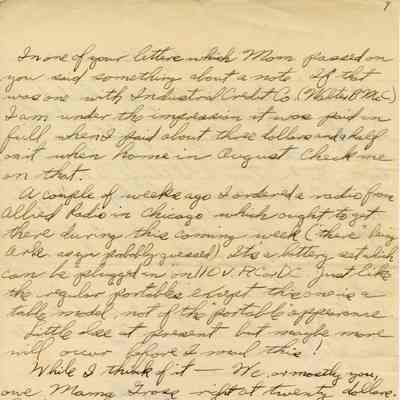 9
In one of your letters which Mom passed on
you said something about a note. If that
was one with Industrial Credit Co. (Walter P McC)
I am under the impression it was paid in
full when I paid about three dollars and a half
on it when home in August. Check me
on that.
A couple of weeks ago I ordered a radio from
Allied Radio in Chicago which ought to get
there during this coming week ("there" being
Arke. as you probably guessed) It's a battery set which
can be plugged in on 110 V. AC or DC just like
the regular portables except this one is a
table model, not of the portable appearance
Little else at present but maybe more
will occur before I mail this!
While I think of it — We, or mostly you,
owe Mama Grose right at twenty dollars.